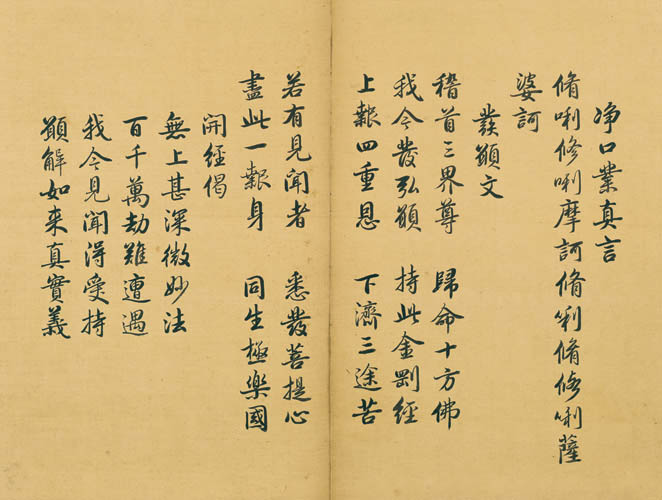 净口業真言
脩唎修唎摩訶脩唎脩修唎薩
婆訶
發願文
稽首三界尊 歸命十方佛
我今發弘願 持此金剛經
上報四重恩 下濟三途苦
若有見聞者 悉發菩提心
盡此一報身 同生極樂國
開經偈
無上甚深微妙法
百千萬劫難遭遇
我今見聞得受持
願解如来真實義